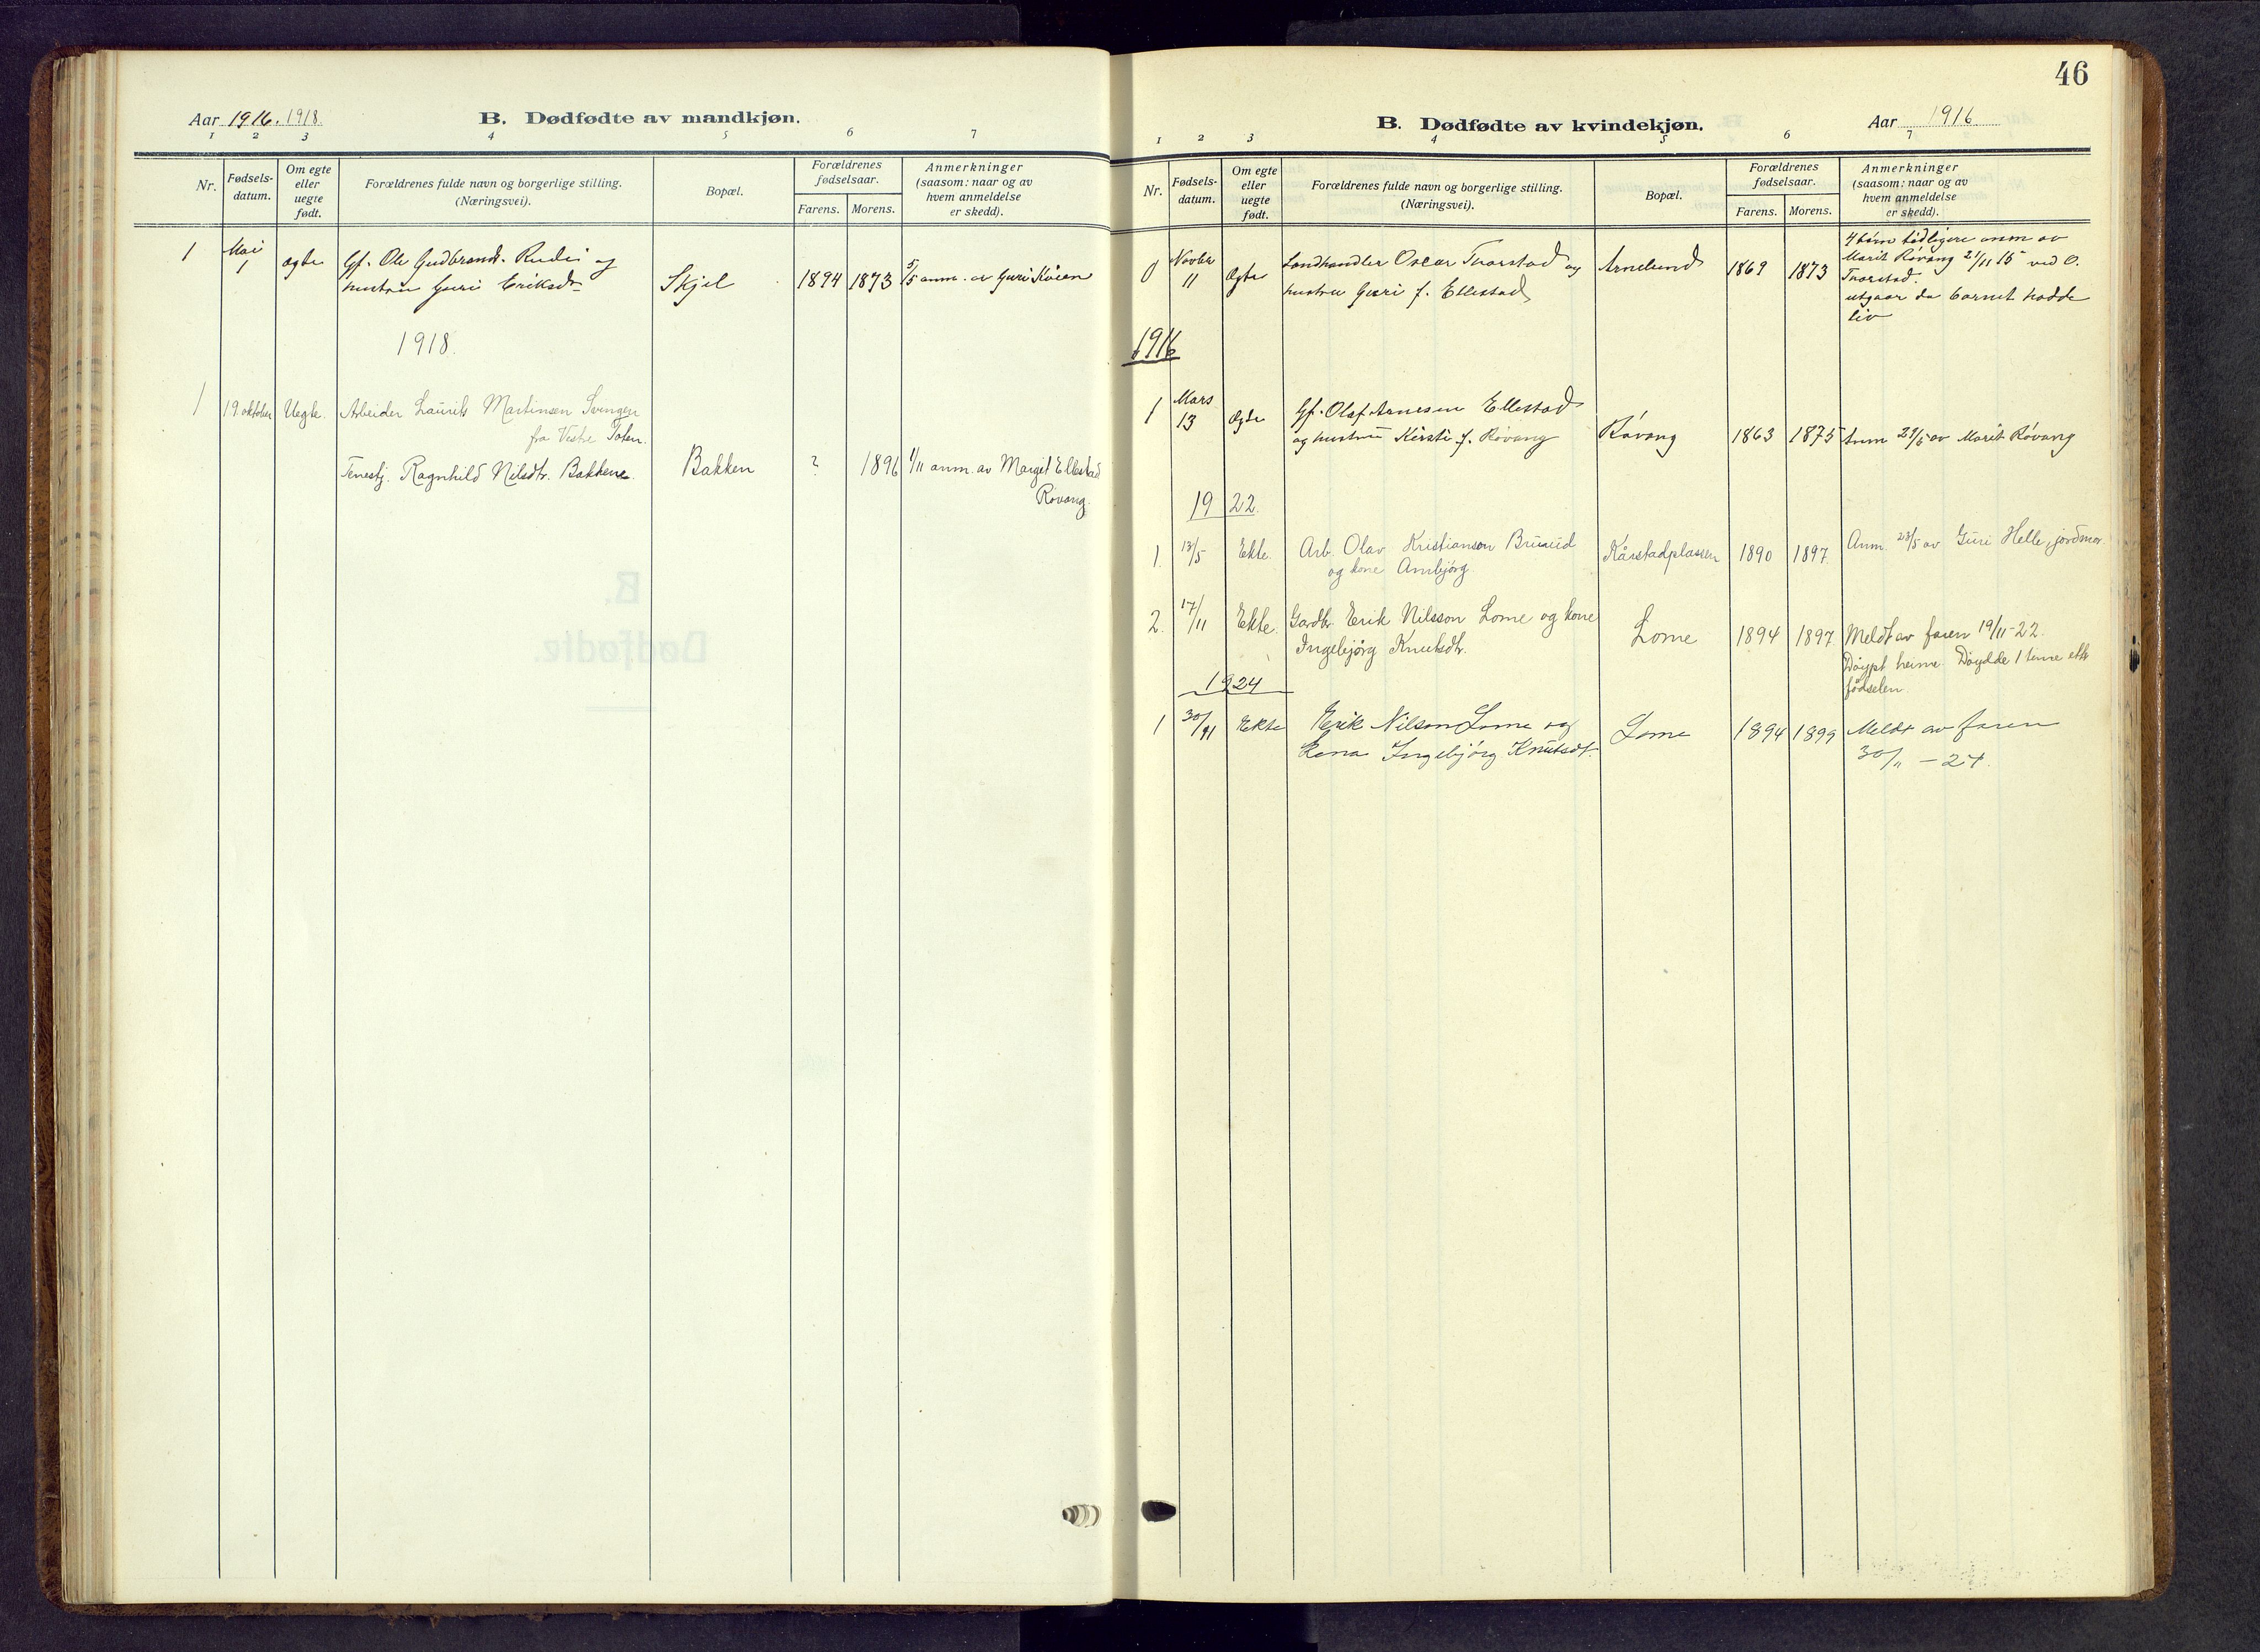 Aar 1916. 1918.
B. Dødfødte av mandkjøn.
1 2 3 4 5 6 7
Nr.
Fødsels-
datum.
Om egte
eller
uegte
født.
Forældrenes fulde navn og borgerlige stilling.
(Næringsvei).
Bopæl.
Forældrenes
fødselsaar.
Farens. Morens.
Anmerkninger
(saasom: naar og av
hvem anmeldelse
er skedd).
1 Mai
1
ægte
Gf. Ole Gudbrands. Rudi og
hustru Guri Eriksdr
Skjel
1894 1873
5/5 anm. av Guri Køien
1918.
1 19 oktober Uegte.
Arbeider Laurits Martinsen Svingen
fra Vestre Toten.
Tenestj. Ragnhild Nilsdtr. Bakkene.
Bakken ? 1896
1/11 anm. av Margit Ellestad
Røvang.
46
B. Dødfødte av kvindekjøn.
Aar 1916
1 2 3 4 5 6 7
Nr.
Fødsels-
datum.
Om egte
eller
uegte
født.
Forældrenes fulde navn og borgerlige stilling.
(Næringsvei).
Bopæl.
Forældrenes
fødselsaar.
Farens. Morens.
Anmerkninger
(saasom: naar og av
hvem anmeldelse
er skedd).
0 Novbr
11
ægte
Landhandler Oscar Tvarstad og
hustru Guri f. Ellestad
Arnelund
1869 1873
4 børn tidligere anm av
Marit Røvang 21/11 15 ved O.
Tvarstad.
utgaar da barnet hadde
liv
1916
1 Mars
13
ægte
Gf. Olaf Arnesen Ellestad
og hustru Kirsti f. Røvang
Røvang
1863 1875
Anm 29/5 av Marit Røvang
1922.
1. 13/5 Ekte.
Arb. Olav Kristianson Bruuid
og kone Ambjørg
Kårstadplassen
1890 1897.
Anm. 23/5 av Guri Helle, jordmor.
2. 17/11 Ekte.
Gardbr. Erik Nilsson Lome og kone
Ingebjørg Knutsdtr.
Lome
1894 1897
Meldt av faren 19/11-22.
Døypt heime. Døydde 1 time etter
fødselen
1924
1 30/11 Ekte
Erik Nilson Lome og
kona Ingebjørg Knutsdt.
Lome
1894 1899
Meldt av faren
30/11 - 24.
B.
Dødfødte.